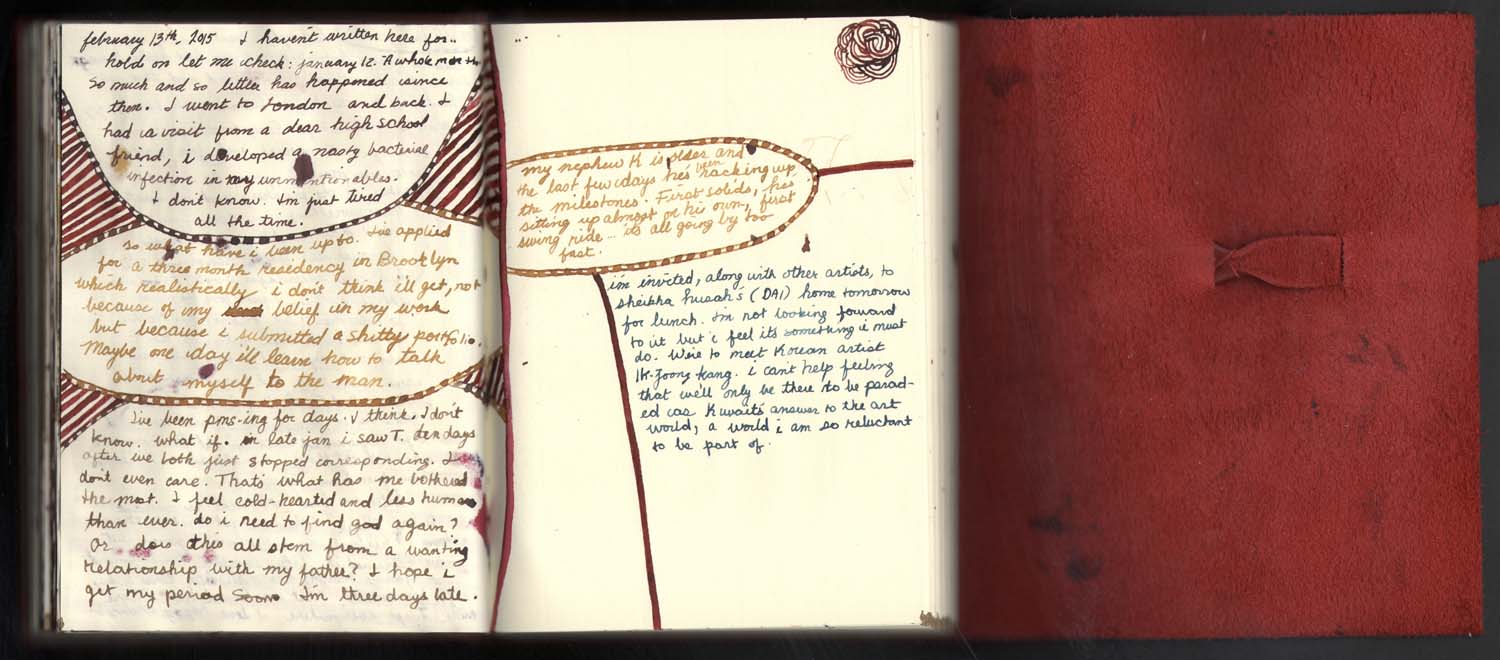 february 13th, 2015 I havent written here for..
hold on let me check: january 12. A whole month.
So much and so little has happened since
then. I went to London and back. I
had a visit from a dear high school
friend, i developed a nasty bacterial
infection in my unmentionables.
I don't know. Im just tired
all the time.
so what have i been up to. I've applied
for a three month residency in Brooklyn
which realistically i don't think i'll get, not
because of my belief in my work
but because i submitted a shitty portfolio.
Maybe one day i'll learn how to talk
about myself to the man.
I've been pms-ing for days. I think. I don't
know. what if. in late jan i saw T. ten days
after we both just stopped corresponding. I
don't even care. Thats what has me bothered
the most. I feel cold-hearted and less human
than ever. do i need to find god again?
Or does this all stem from a wanting
relationship with my father? I hope i
get my period soon. I'm three days late.
my nephew K is older and
the last few days he's been racking up
the milestones. First solids, hes
sitting up almost on his own, first
swing ride... its all going by too
fast.
i'm invited, along with other artists, to
sheikha hussah's (DAI) home tomorrow
for lunch. Im not looking forward
to it but i feel its something i must
do. We're to meet Korean artist
Ik-Joong Kang. i cant help feeling
that we'll only be there to be parad-
ed as Kuwaits answer to the art
world, a world i am so reluctant
to be part of.